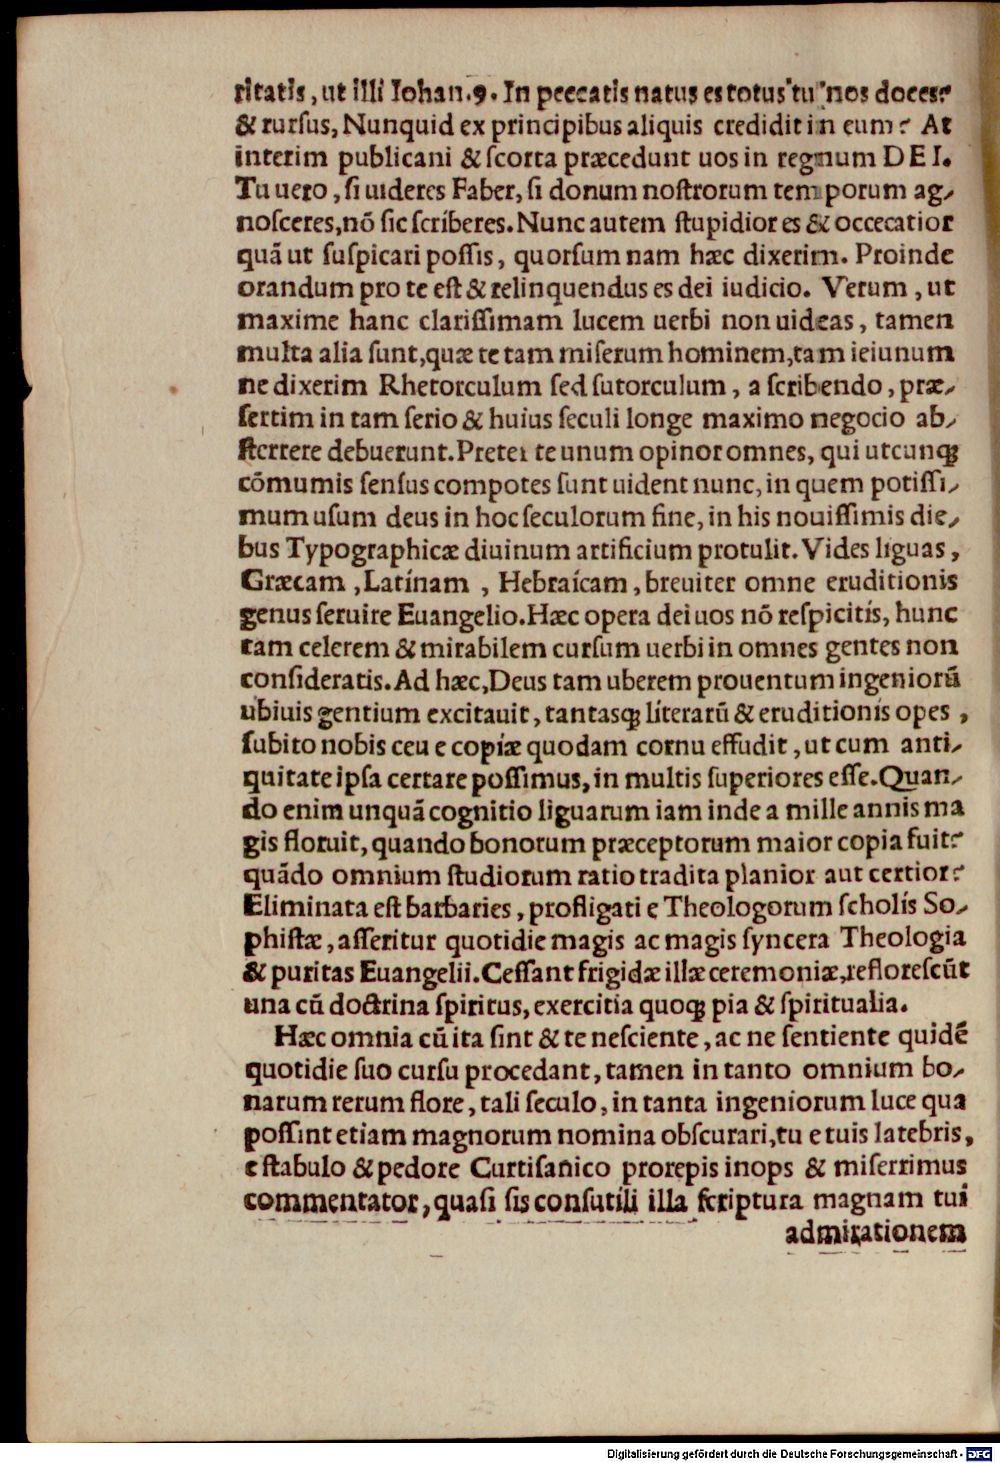 ritatis, ut illi Iohan.9. In peccatis natus es totus tu nos doces?
& rursus, Nunquid ex principibus aliquis credidit in eum? At
interim publicani & scorta præcedunt uos in regnum DEI.
Tu uero, si uideres Faber, si donum nostrorum temporum ag-
nosceres, nõ sic scriberes. Nunc autem stupidior es & occecatior
quã ut suspicari possis, quorsum nam hæc dixerim. Proinde
orandum pro te est & relinquendus es dei iudicio. Verum, ut
maxime hanc clarissimam lucem uerbi non uideas, tamen
multa alia sunt, quæ te tam miserum hominem, tam ieiunum
ne dixerim Rhetorculum sed sutorculum, a scribendo, præ-
sertim in tam serio & huius seculi longe maximo negocio ab-
sterrere debuerunt. Preter te unum opinor omnes, qui utcunqꝫ
cõmumis sensus compotes sunt uident nunc, in quem potissi-
mum usum deus in hoc seculorum fine, in his nouissimis die-
bus Typographicæ diuinum artificium protulit. Vides liguas,
Græcam, Latinam, Hebraicam, breuiter omne eruditionis
genus seruire Euangelio. Hæc opera dei uos nõ respicitis, hunc
tam celerem & mirabilem cursum uerbi in omnes gentes non
consideratis. Ad hæc, Deus tam uberem prouentum ingeniorũ
ubiuis gentium excitauit, tantasqꝫ literarũ & eruditionis opes,
subito nobis ceu e copiæ quodam cornu effudit, ut cum anti-
quitate ipsa certare possimus, in multis superiores esse. Quan-
do enim unquã cognitio liguarum iam inde a mille annis ma
gis floruit, quando bonorum præceptorum maior copia fuit?
quãdo omnium studiorum ratio tradita planior aut certior?
Eliminata est barbaries, profligati e Theologorum scholis So-
phistæ, asseritur quotidie magis ac magis syncera Theologia
& puritas Euangelii. Cessant frigidæ illæ ceremoniæ, reflorescũt
una cũ doctrina spiritus, exercitia quoqꝫ pia & spiritualia.
Hæc omnia cũ ita sint & te nesciente, ac ne sentiente quidẽ
quotidie suo cursu procedant, tamen in tanto omnium bo-
narum rerum flore, tali seculo, in tanta ingeniorum luce qua
possint etiam magnorum nomina obscurari, tu e tuis latebris,
e stabulo & pedore Curtisanico prorepis inops & miserrimus
commentator, quasi sis consutili illa scriptura magnam tui
admirationem
Digitalisierung gefördert durch die Deutsche Forschungsgemeinschaft - DFG